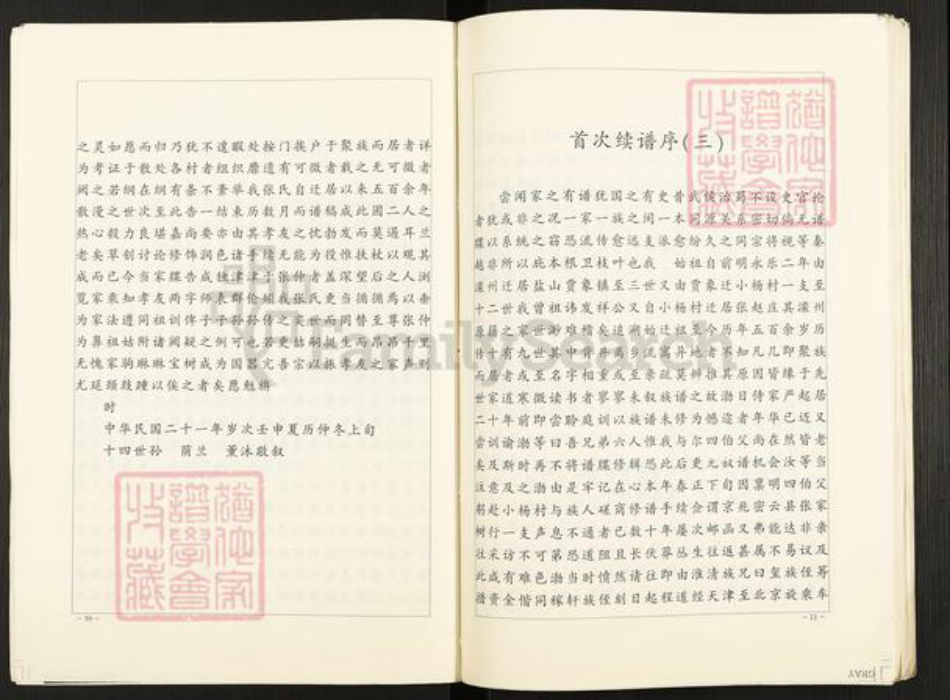 之灵如愿而归乃犹不遑暇处按门挨户于聚族而居者详
为考证于散处各村者组织靡遗有可微者载之无可微者
阙之若纲在纲有条不紊举我张氏自迁居以来五百余年
散漫之世次至此告一结束历数月而谱稿成此固二人之
热心毅力良堪嘉尚要亦由其孝友之忱勃发而莫遏耳兰
老矣草创讨论修饰润色诸手续无能为役惟扶杖以观其
成而已今当家牒告成独津津于张仲者盖深望后之人浏
览家乘知孝友两字师表群伦矧我张氏更当循循焉以条
为家法遵同祖训俾子子孙孙传之奕世而罔替至尊张仲
为鼻祖姑附诸阙疑之例可也若史姑嗣挺生而昂昂千里
无愧家驹眯眯宝树成为国器完吾宗以振孝友之家声则
尤延颈跂踵以俟之者矣愿勉旃
时
中华民国二十一年岁次壬申夏历仲冬上旬
十四世孙 荫兰 薰沐敬叙
- 10 -
首次续谱序(三)
尝闻家之有谱犹国之有史昔武侯治蜀不设史官论
者犹或非之况一家一族之间一本同源关系密切倘无谱
牒以系统之窃恐流传愈远支派愈纷久之同宗将视等秦
越非所以庇本根卫枝叶也我 始祖自前明永乐二年由
滦州迁居盐山贾象镇至三世又由贾象迁小杨村一支至
十二世我曾祖讳发祥公又自小杨村迁居张赵庄其滦州
原籍之家世渺难稽矣追溯始迁祖至今历年五百余岁历
传十有九世其中背井离乡流寓异地者不知凡几即聚族
而居者或至名字相重或至亲疏莫辨推其原因皆缘于先
世家道寒微读书者寥寥未叙族谱之故渤日侍家严起居
二十年前即尝聆庭训以族谱未修为憾迄者年华已迈又
尝训谕渤等曰吾兄弟六人惟我与尔四伯父尚在然皆老
矣及斯时再不将谱牒修辑恐此后更尤叙谱机会汝等当
注意及之渤由是牢记在心本年春正下旬因禀明四伯父
躬赴小杨村与族人磋商修谱手续佥谓京兆密云县张家
树行一支声息不通者已数十年屡次邮函又弗能达非亲
往采访不可第恐道阻且长伏莽丛生往返甚属不易议及
此咸有难色渤当时愤然请往即由淮清族兄曰玺族侄筹
措资金偕同稼轩族侄刻日起程道经天津至北京旋乘车
- 11 -
GRAY
FamilySearch